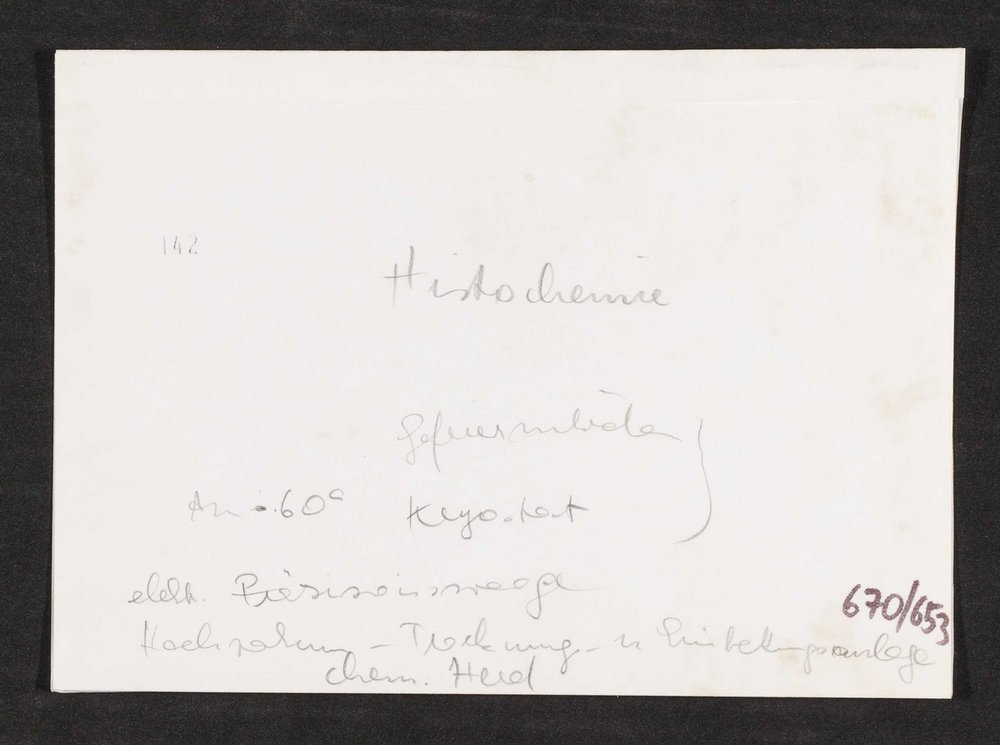 142
Histochemie
An -60°
Kryostat
elektr. Präzisionswaage
670/653
Hochvakuum - Trocknungs- u Einbettungsanlage
chem. Herd